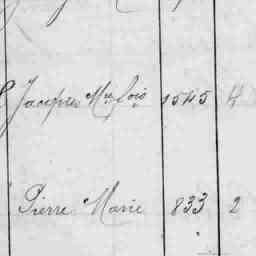 Jacques Mie fois 1545 4
Pierre Marie 833 2